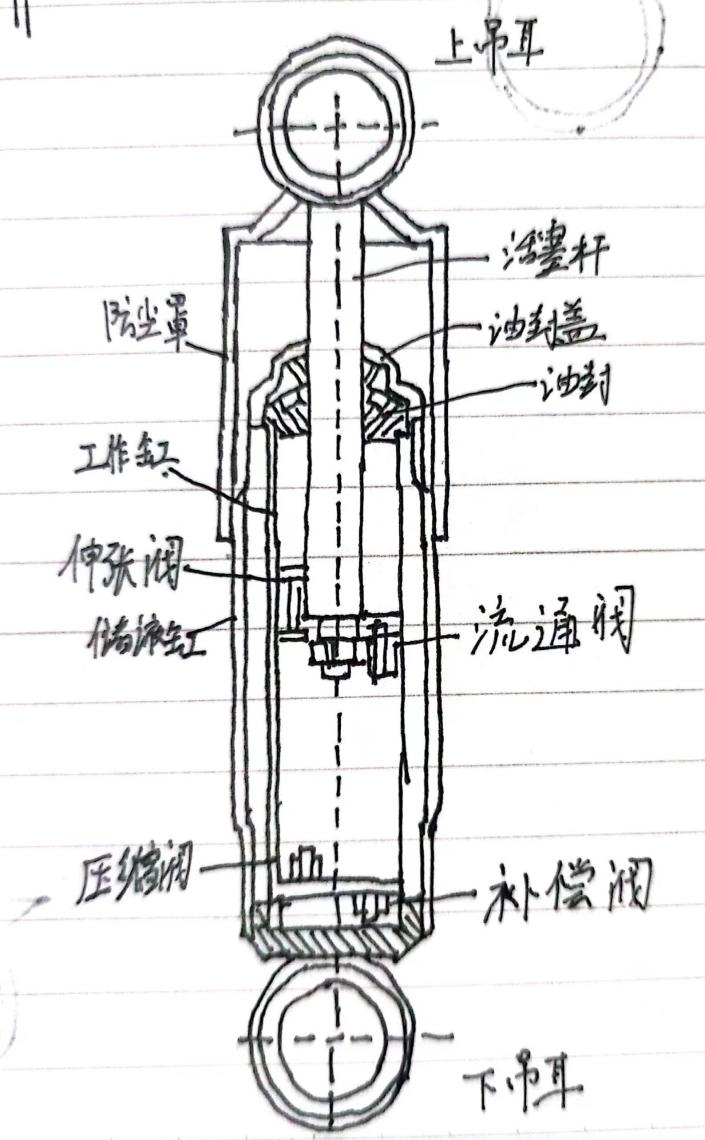 上吊耳
活塞杆
防尘罩
油封盖
油封
工作缸
伸张阀
储液缸
流通阀
压缩阀
补偿阀
下吊耳